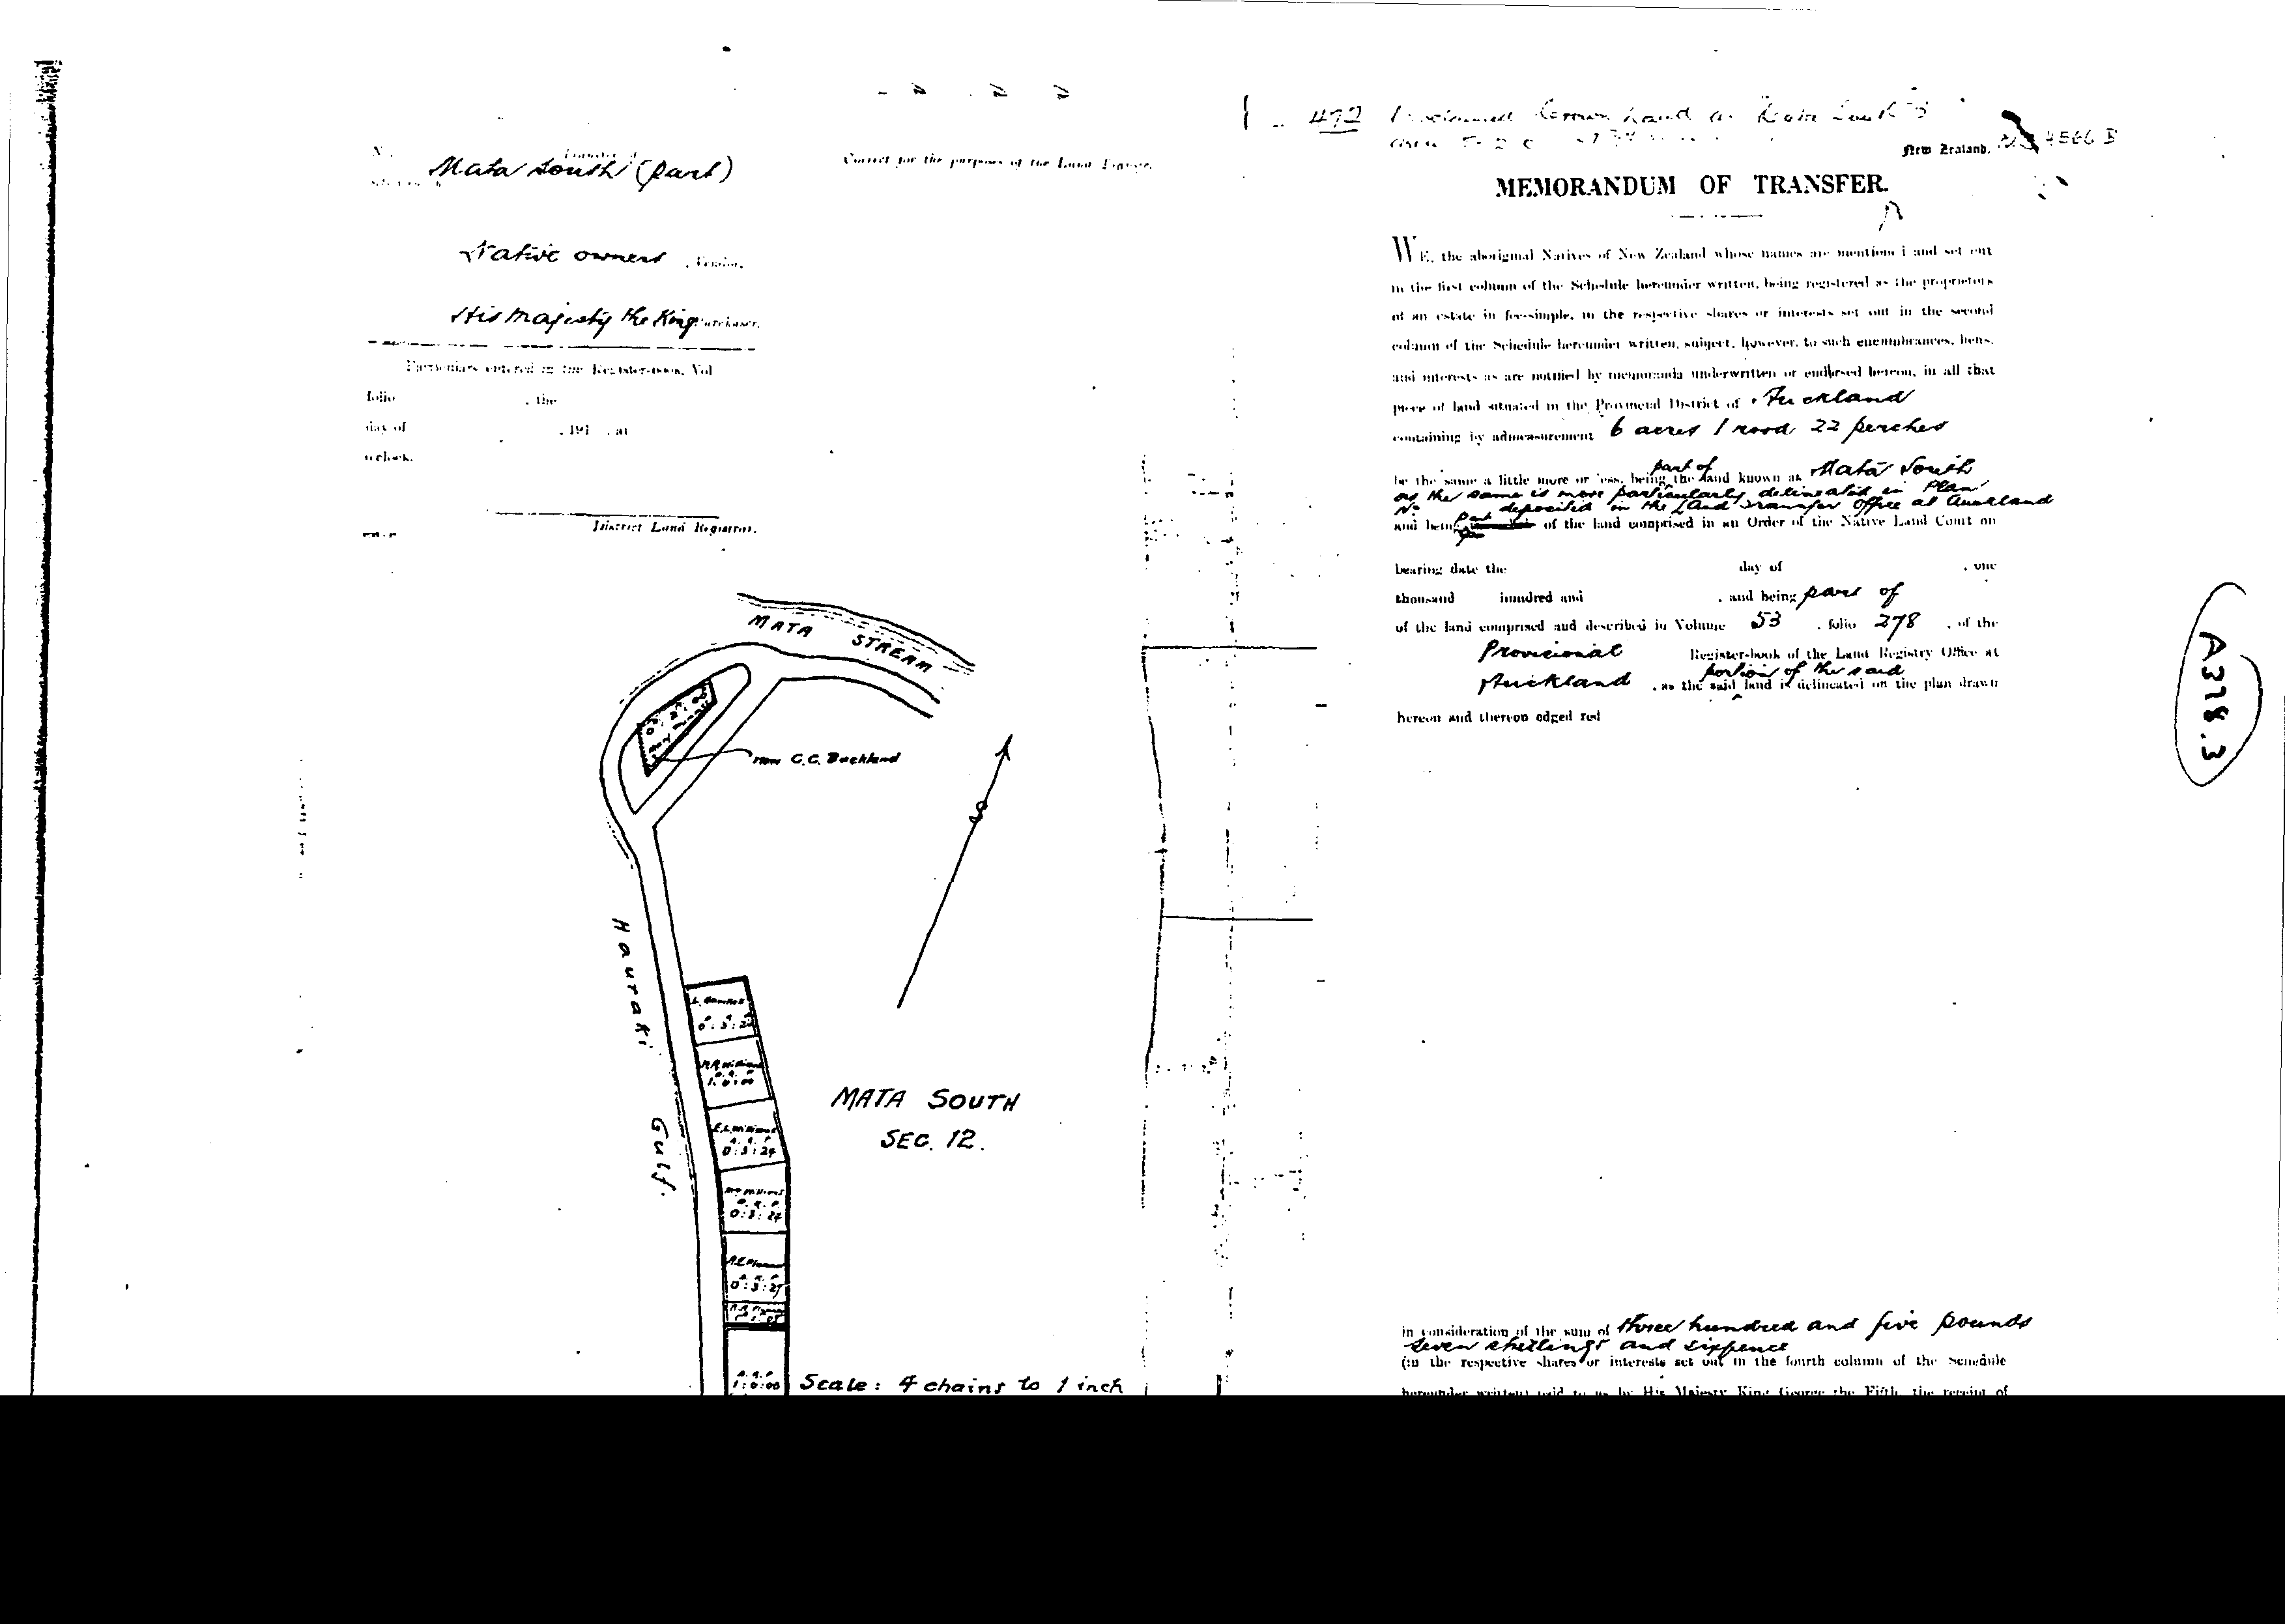 Mata South (part)
Correct for the purposes of the Land Transfer
Native owners , Vendor.
His Majesty the King Purchaser.
Particulars entered in the Register-book, Vol
folio , the
day of , 191 , at
o'clock.
District Land Registrar.
MATA STREAM
now C.C. Buckland
Hauraki Gulf.
A. R. P.
1:0:00
A. R. P.
0:3:24
A. R. P.
0:3:24
A. R. P.
0:3:27
MATA SOUTH
SEC. 12.
A. R. P.
1:0:00
Scale: 4 chains to 1 inch
492 Proclaimed Crown Land as Mata South
New Zealand. 4566 B
MEMORANDUM OF TRANSFER.
WE, the aboriginal Natives of New Zealand whose names are mentioned and set out
in the first column of the Schedule hereunder written, being registered as the proprietors
of an estate in fee-simple, in the respective shares or interests set out in the second
column of the Schedule hereunder written, subject, however, to such encumbrances, liens,
and interests as are notified by memoranda underwritten or endorsed hereon, in all that
piece of land situated in the Provincial District of Auckland
containing by admeasurement 6 acres 1 rood 22 perches
be the same a little more or less, being part of the land known as Mata South
as the same is more particularly delineated in Plan
No deposited in the Land Transfer Office at Auckland
and being Part of the land comprised in an Order of the Native Land Court on
bearing date the day of , one
thousand hundred and , and being part of
of the land comprised and described in Volume 53 , folio 278 , of the
Provisional Register-book of the Land Registry Office at
Auckland , as the said portion of the said land is delineated on the plan drawn
hereon and thereon edged red
A318.3
in consideration of the sum of three hundred and five pounds
seven shillings and sixpence
(in the respective shares or interests set out in the fourth column of the Schedule
hereunder written) paid to us by His Majesty King George the Fifth, the receipt of